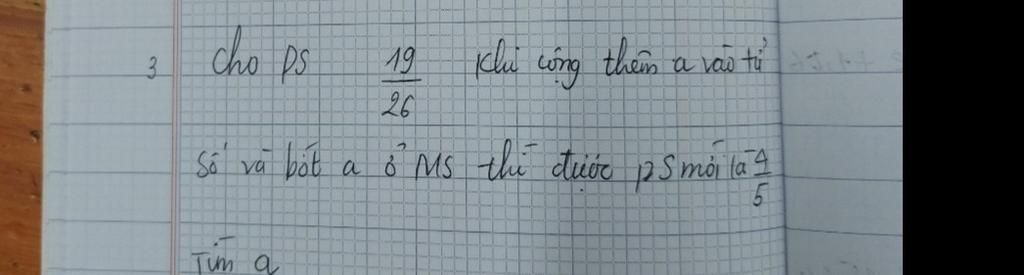 3 Cho PS 19/26 Khi cộng thêm a vào tử
số và bớt a ở MS thì được PS mới là 4/5
Tìm a